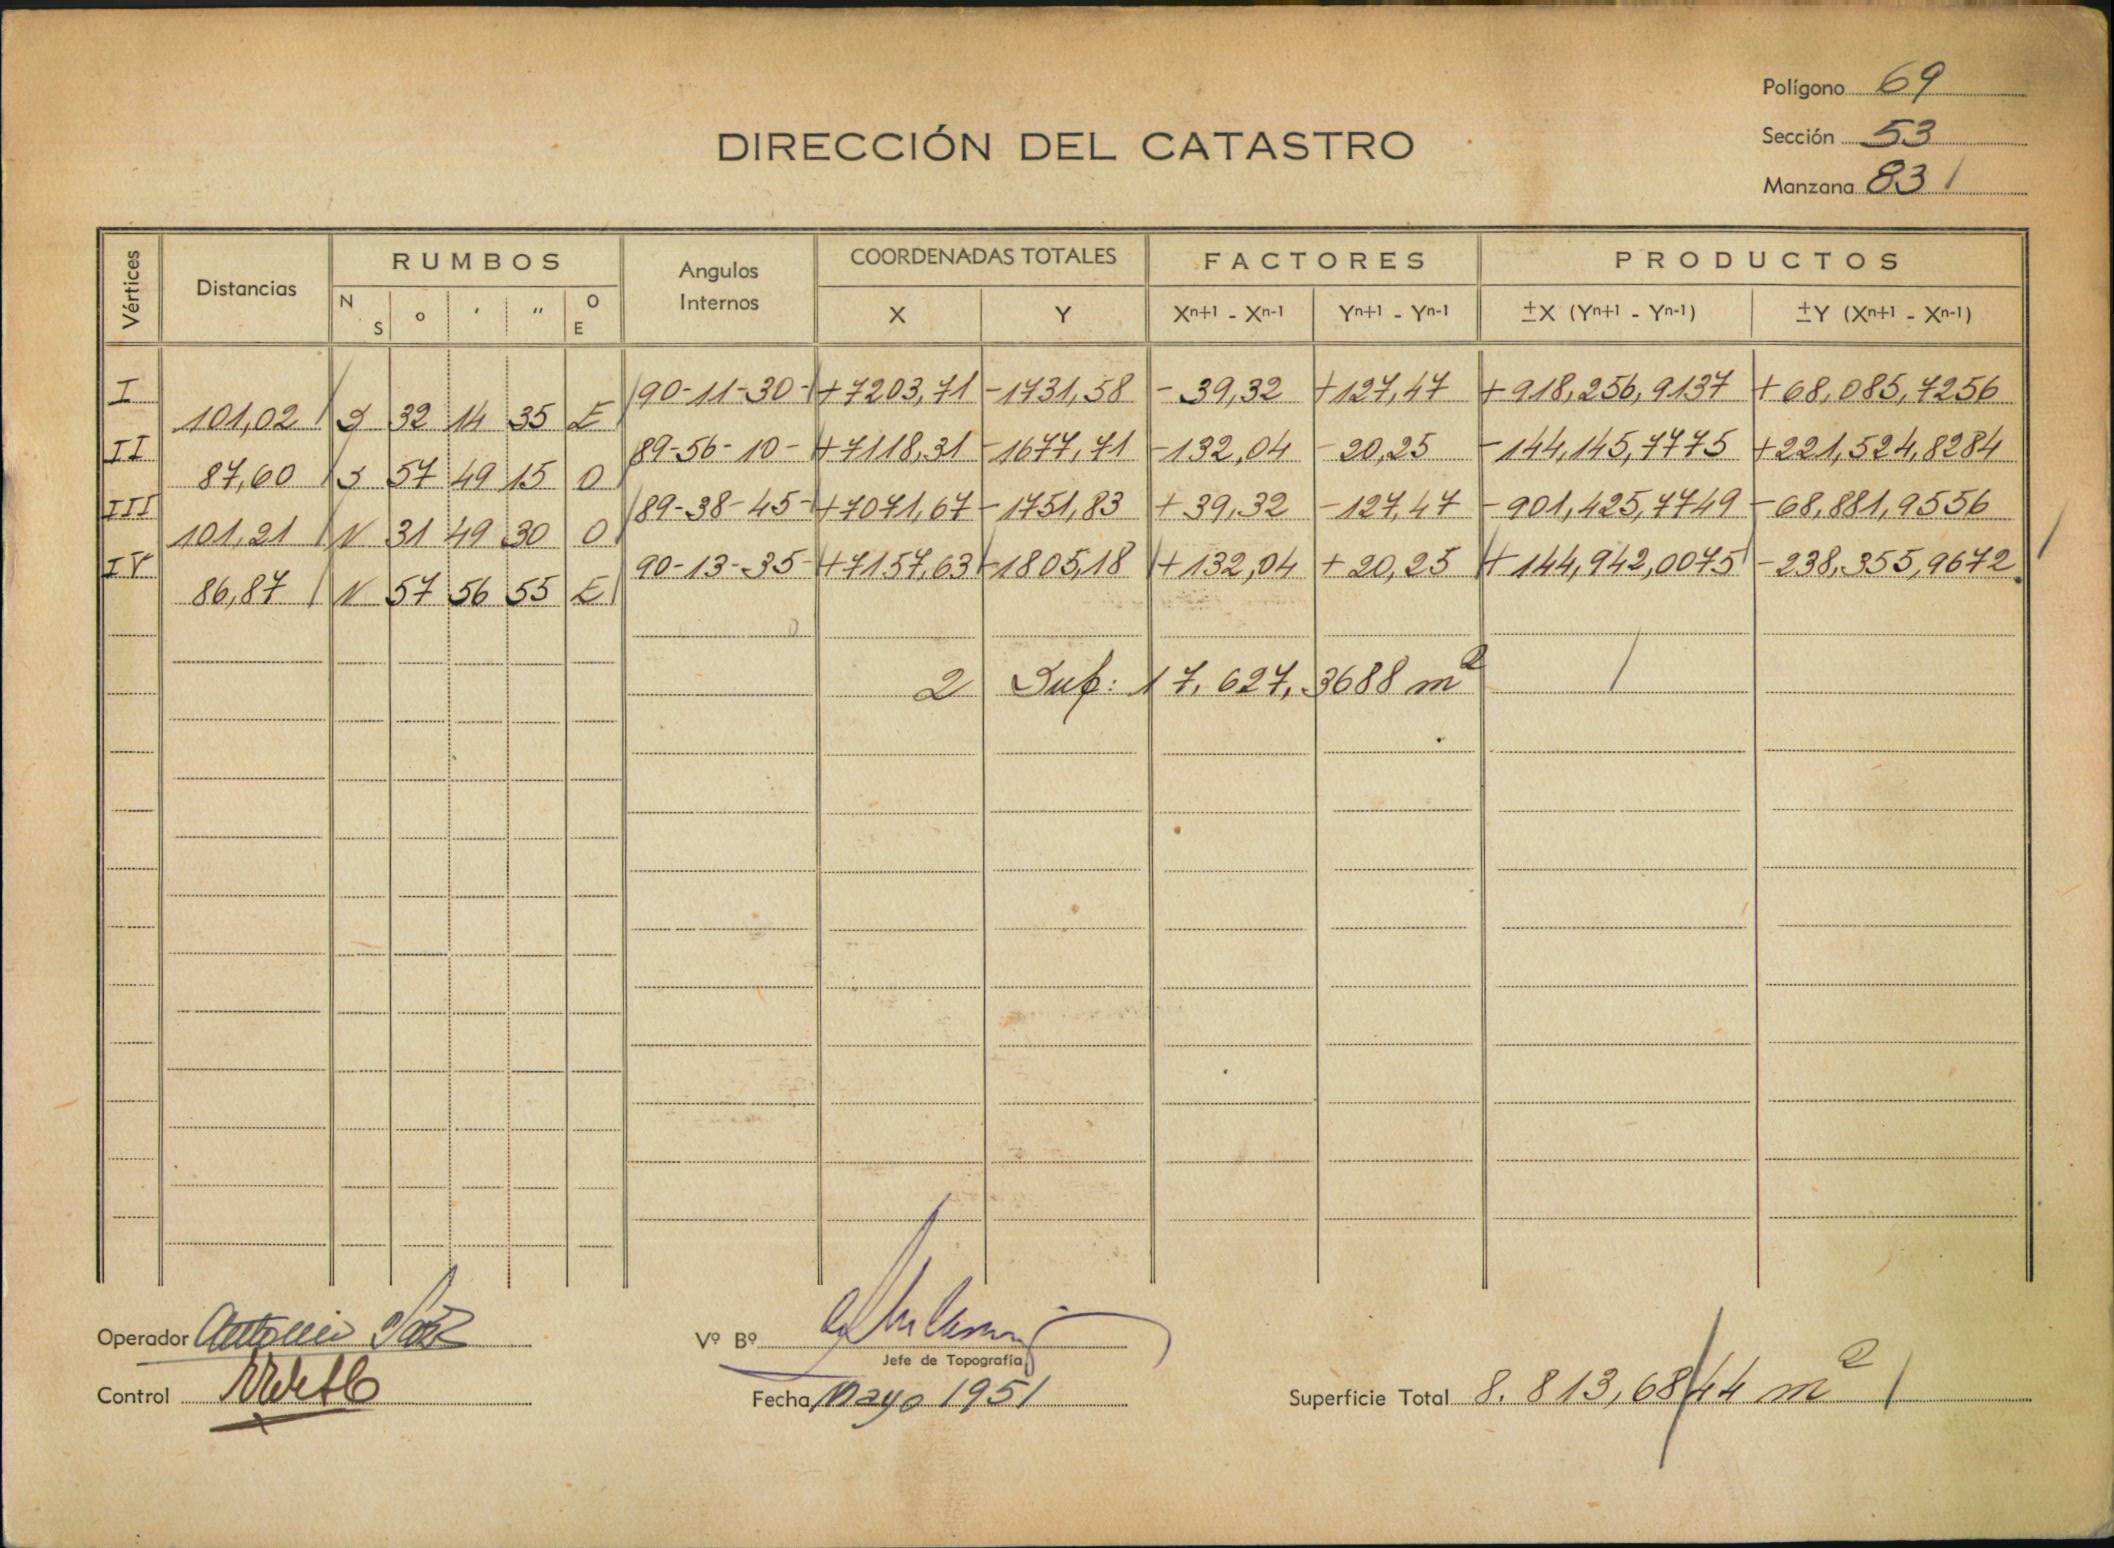 Polígono 69
DIRECCIÓN DEL CATASTRO
Sección 53
Manzana 83
Vértices Distancias RUMBOS Angulos Internos COORDENADAS TOTALES FACTORES PRODUCTOS
N S o ' " O E X Y Xn+1 - Xn-1 Yn+1 - Yn-1 ±X (Yn+1 - Yn-1) ±Y (Xn+1 - Xn-1)
I 90-11-30- +7203,71 -1731,58 -39,32 +127,47 +918,256,9137 +68,085,7256
101,02 S 32 14 35 E
II 89-56-10- +7118,31 -1677,71 -132,04 -20,25 -144,145,7775 +221,524,8284
87,60 S 57 49 15 O
III 89-38-45- +7071,67 -1751,83 +39,32 -127,47 -901,425,7749 -68,881,9556
101,21 N 31 49 30 O
IV 90-13-35- +7157,63 -1805,18 +132,04 +20,25 +144,942,0075 -238,355,9672
86,87 N 57 56 55 E
2 Sup: 17.627,3688 m2
Operador Antonio
Vº Bº
Jefe de Topografía
Control
Fecha Mayo 1951
Superficie Total 8.813,6844 m2